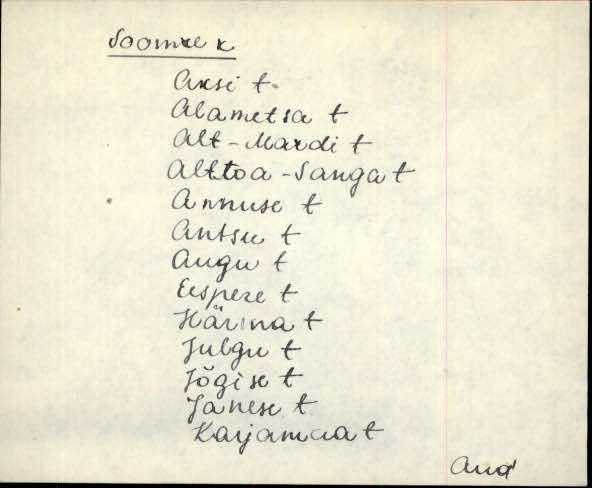 Soomre k
Aksi t.
Alametsa t
Alt-Mardi t
Alttoa-Sanga t
Annuse t
Antsu t
Augu t
Eespere t
Härma t
Julgu t
Jõgise t
Jänese t
Karjamaa t
And